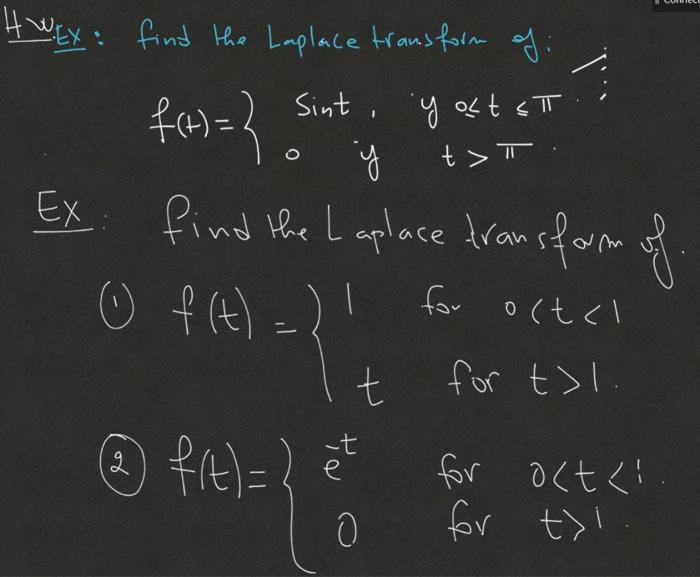 H.w. Ex: find the Laplace transform of:
f(t) = { sint, if 0≤t≤π
0 if t>π.
Ex: find the Laplace transform of.
① f(t) = { 1 for 0<t<1
t for t>1.
② f(t) = { e^-t for 0<t<1.
0 for t>1.